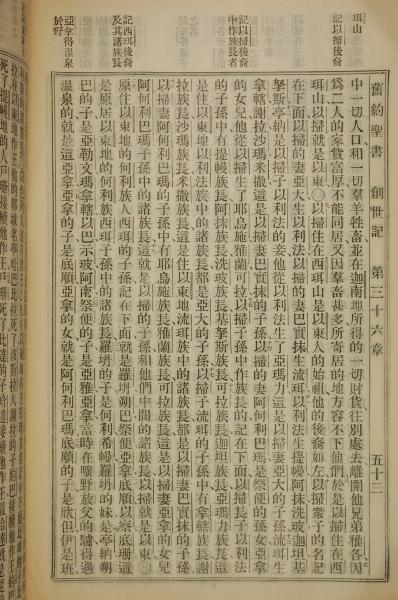 舊約聖書 創世記 第三十六章 五十二
珥山
記以掃後裔
中一切人口和一切羣羊牲畜並在迦南地所得的一切財貨往別處去離開他兄弟雅各因
為二人的家貲富厚不能同居又因羣畜甚多所寄居的地方容不下他們於是以掃住在西
珥山以掃就是以東〇以掃住在西珥山是以東人的始祖他的後裔如左以掃衆子的名記
在下面以掃的妻亞大生以利法以掃的妻巴實抹生流珥以利法生提幔阿抹洗玻迦坦基
拏斯亭納是以掃子以利法的妾他從以利法生了亞瑪力這是以掃妻亞大的子孫流珥生
拿轄謝拉沙瑪米撒這是以掃妻巴實抹的子孫以掃的妻阿何利巴瑪是祭便的孫女亞拿
記以掃後裔
中作族長者
的女兒他從以掃生了耶烏施雅蘭可拉以掃子孫中作族長的記在下面以掃長子以利法
的子孫中有提幔族長阿抹族長洗玻族長基拏斯族長可拉族長迦坦族長亞瑪力族長這
是住以東地以利法族中的諸族長都是亞大的子孫以掃子流珥的子孫中有拿轄族長謝
拉族長沙瑪族長米撒族長這是住以東地流珥族中的諸族長都是以掃妻巴實抹的子孫
以掃妻阿何利巴瑪的子孫中有耶烏施族長雅蘭族長可拉族長這是以掃妻亞拿的女兒
阿何利巴瑪子孫中的諸族長這就是以掃的子孫和他們中間的諸族長以掃就是以東〇
記西珥後裔
及其諸族長
原住以東地的何利族人西珥的子孫記在下面就是羅坍朔巴祭便亞拿底順以察底珊這
是原居以東地的何利族西珥子孫中的諸族長羅坍的子是何利希幔羅坍的妹是亭納朔
亞拿得溫泉
於野
巴的子是亞勒文瑪拿轄以巴示玻阿南祭便的子是亞雅亞拿當時在曠野放父的驢得遇
溫泉的就是這亞拿亞拿的子是底順亞拿的女就是阿何利巴瑪底順的子是欣但伊是班